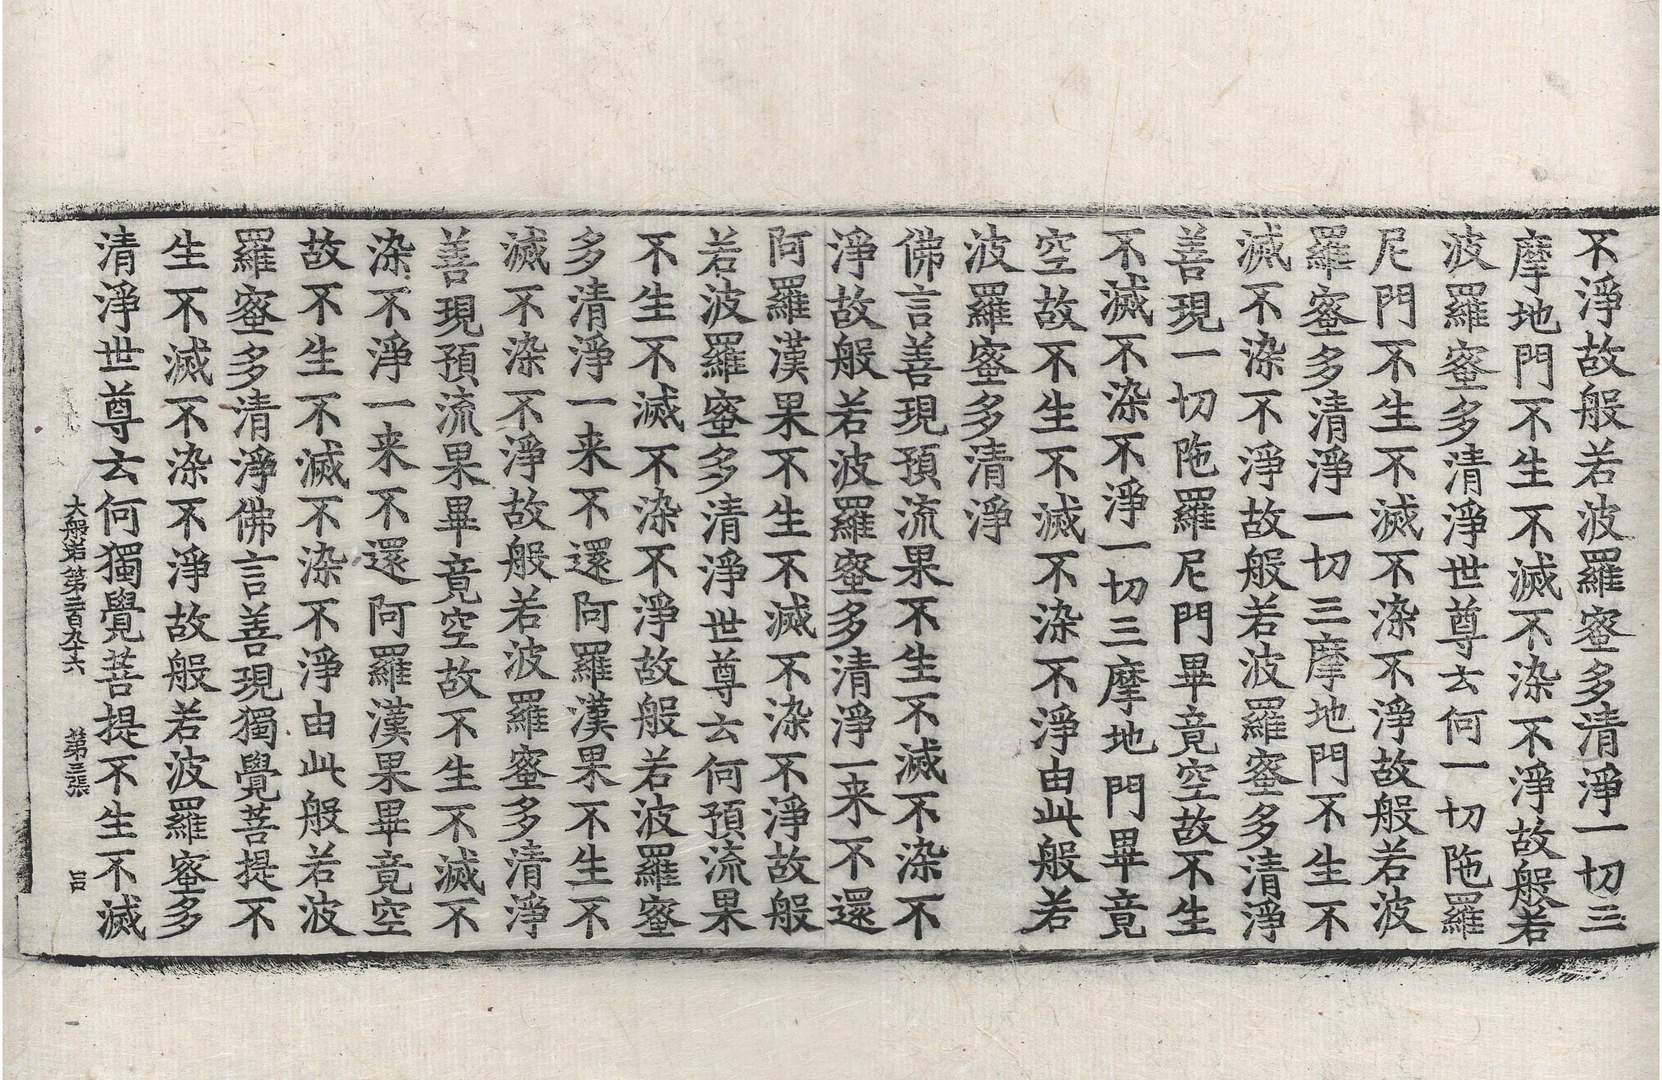 不淨故般若波羅蜜多清淨一切三
摩地門不生不滅不染不淨故般若
波羅蜜多清淨世尊云何一切陁羅
尼門不生不滅不染不淨故般若波
羅蜜多清淨一切三摩地門不生不
滅不染不淨故般若波羅蜜多清淨
善現一切陁羅尼門畢竟空故不生
不滅不染不淨一切三摩地門畢竟
空故不生不滅不染不淨由此般若
波羅蜜多清淨
佛言善現預流果不生不滅不染不
淨故般若波羅蜜多清淨一来不還
阿羅漢果不生不滅不染不淨故般
若波羅蜜多清淨世尊云何預流果
不生不滅不染不淨故般若波羅蜜
多清淨一来不還阿羅漢果不生不
滅不染不淨故般若波羅蜜多清淨
善現預流果畢竟空故不生不滅不
染不淨一来不還阿羅漢果畢竟空
故不生不滅不染不淨由此般若波
羅蜜多清淨佛言善現獨覺菩提不
生不滅不染不淨故般若波羅蜜多
清淨世尊云何獨覺菩提不生不滅
大般若第二百九十六 第三張 呂